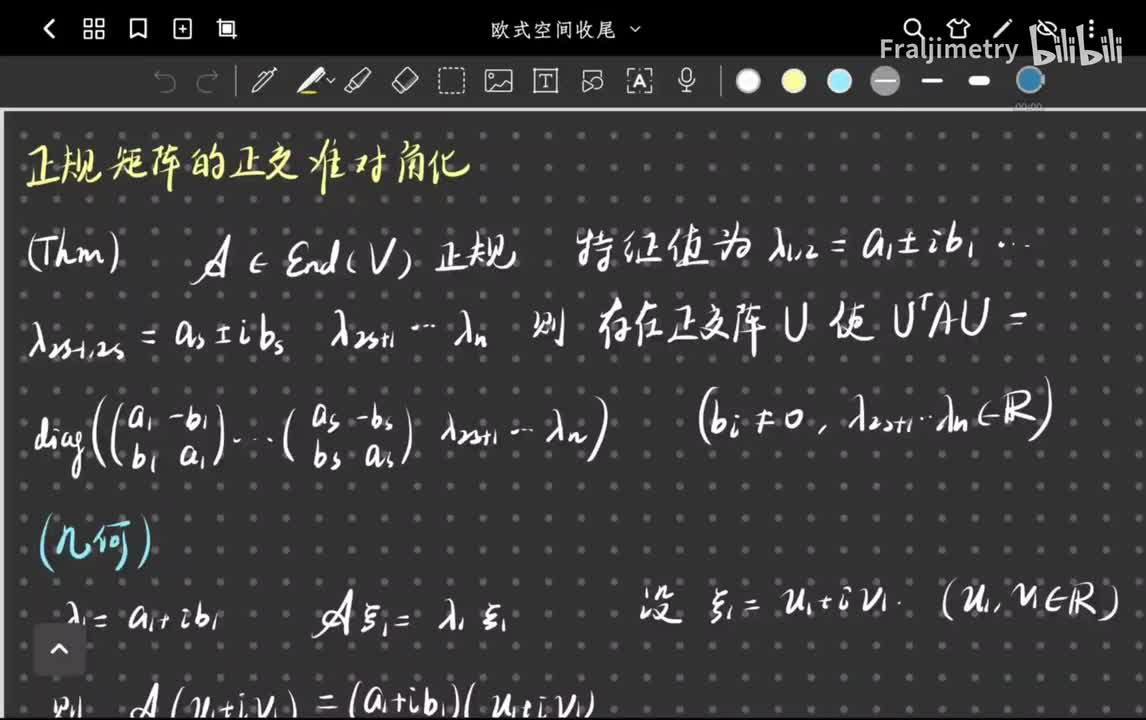 欧式空间收尾
Fraljimetry bilibili
T
A
00:00
正规矩阵的正交准对角化
(Thm) A ∈ End(V) 正规 特征值为 λ₁,₂ = a₁±ib₁ ...
λ₂ₛ₋₁,₂ₛ = aₛ±ibₛ λ₂ₛ₊₁ ... λₙ 则 存在正交阵 U 使 UᵀAU =
diag((a₁ -b₁ b₁ a₁) ... (aₛ -bₛ bₛ aₛ) λ₂ₛ₊₁ ... λₙ) (bᵢ ≠ 0, λ₂ₛ₊₁ ... λₙ ∈ ℝ)
(几何)
λ₁ = a₁+ib₁ Aξ₁ = λ₁ξ₁ 设 ξ₁ = u₁+iv₁. (u₁, v₁ ∈ ℝ)
则 A(u₁+iv₁) = (a₁+ib₁)(u₁+iv₁)